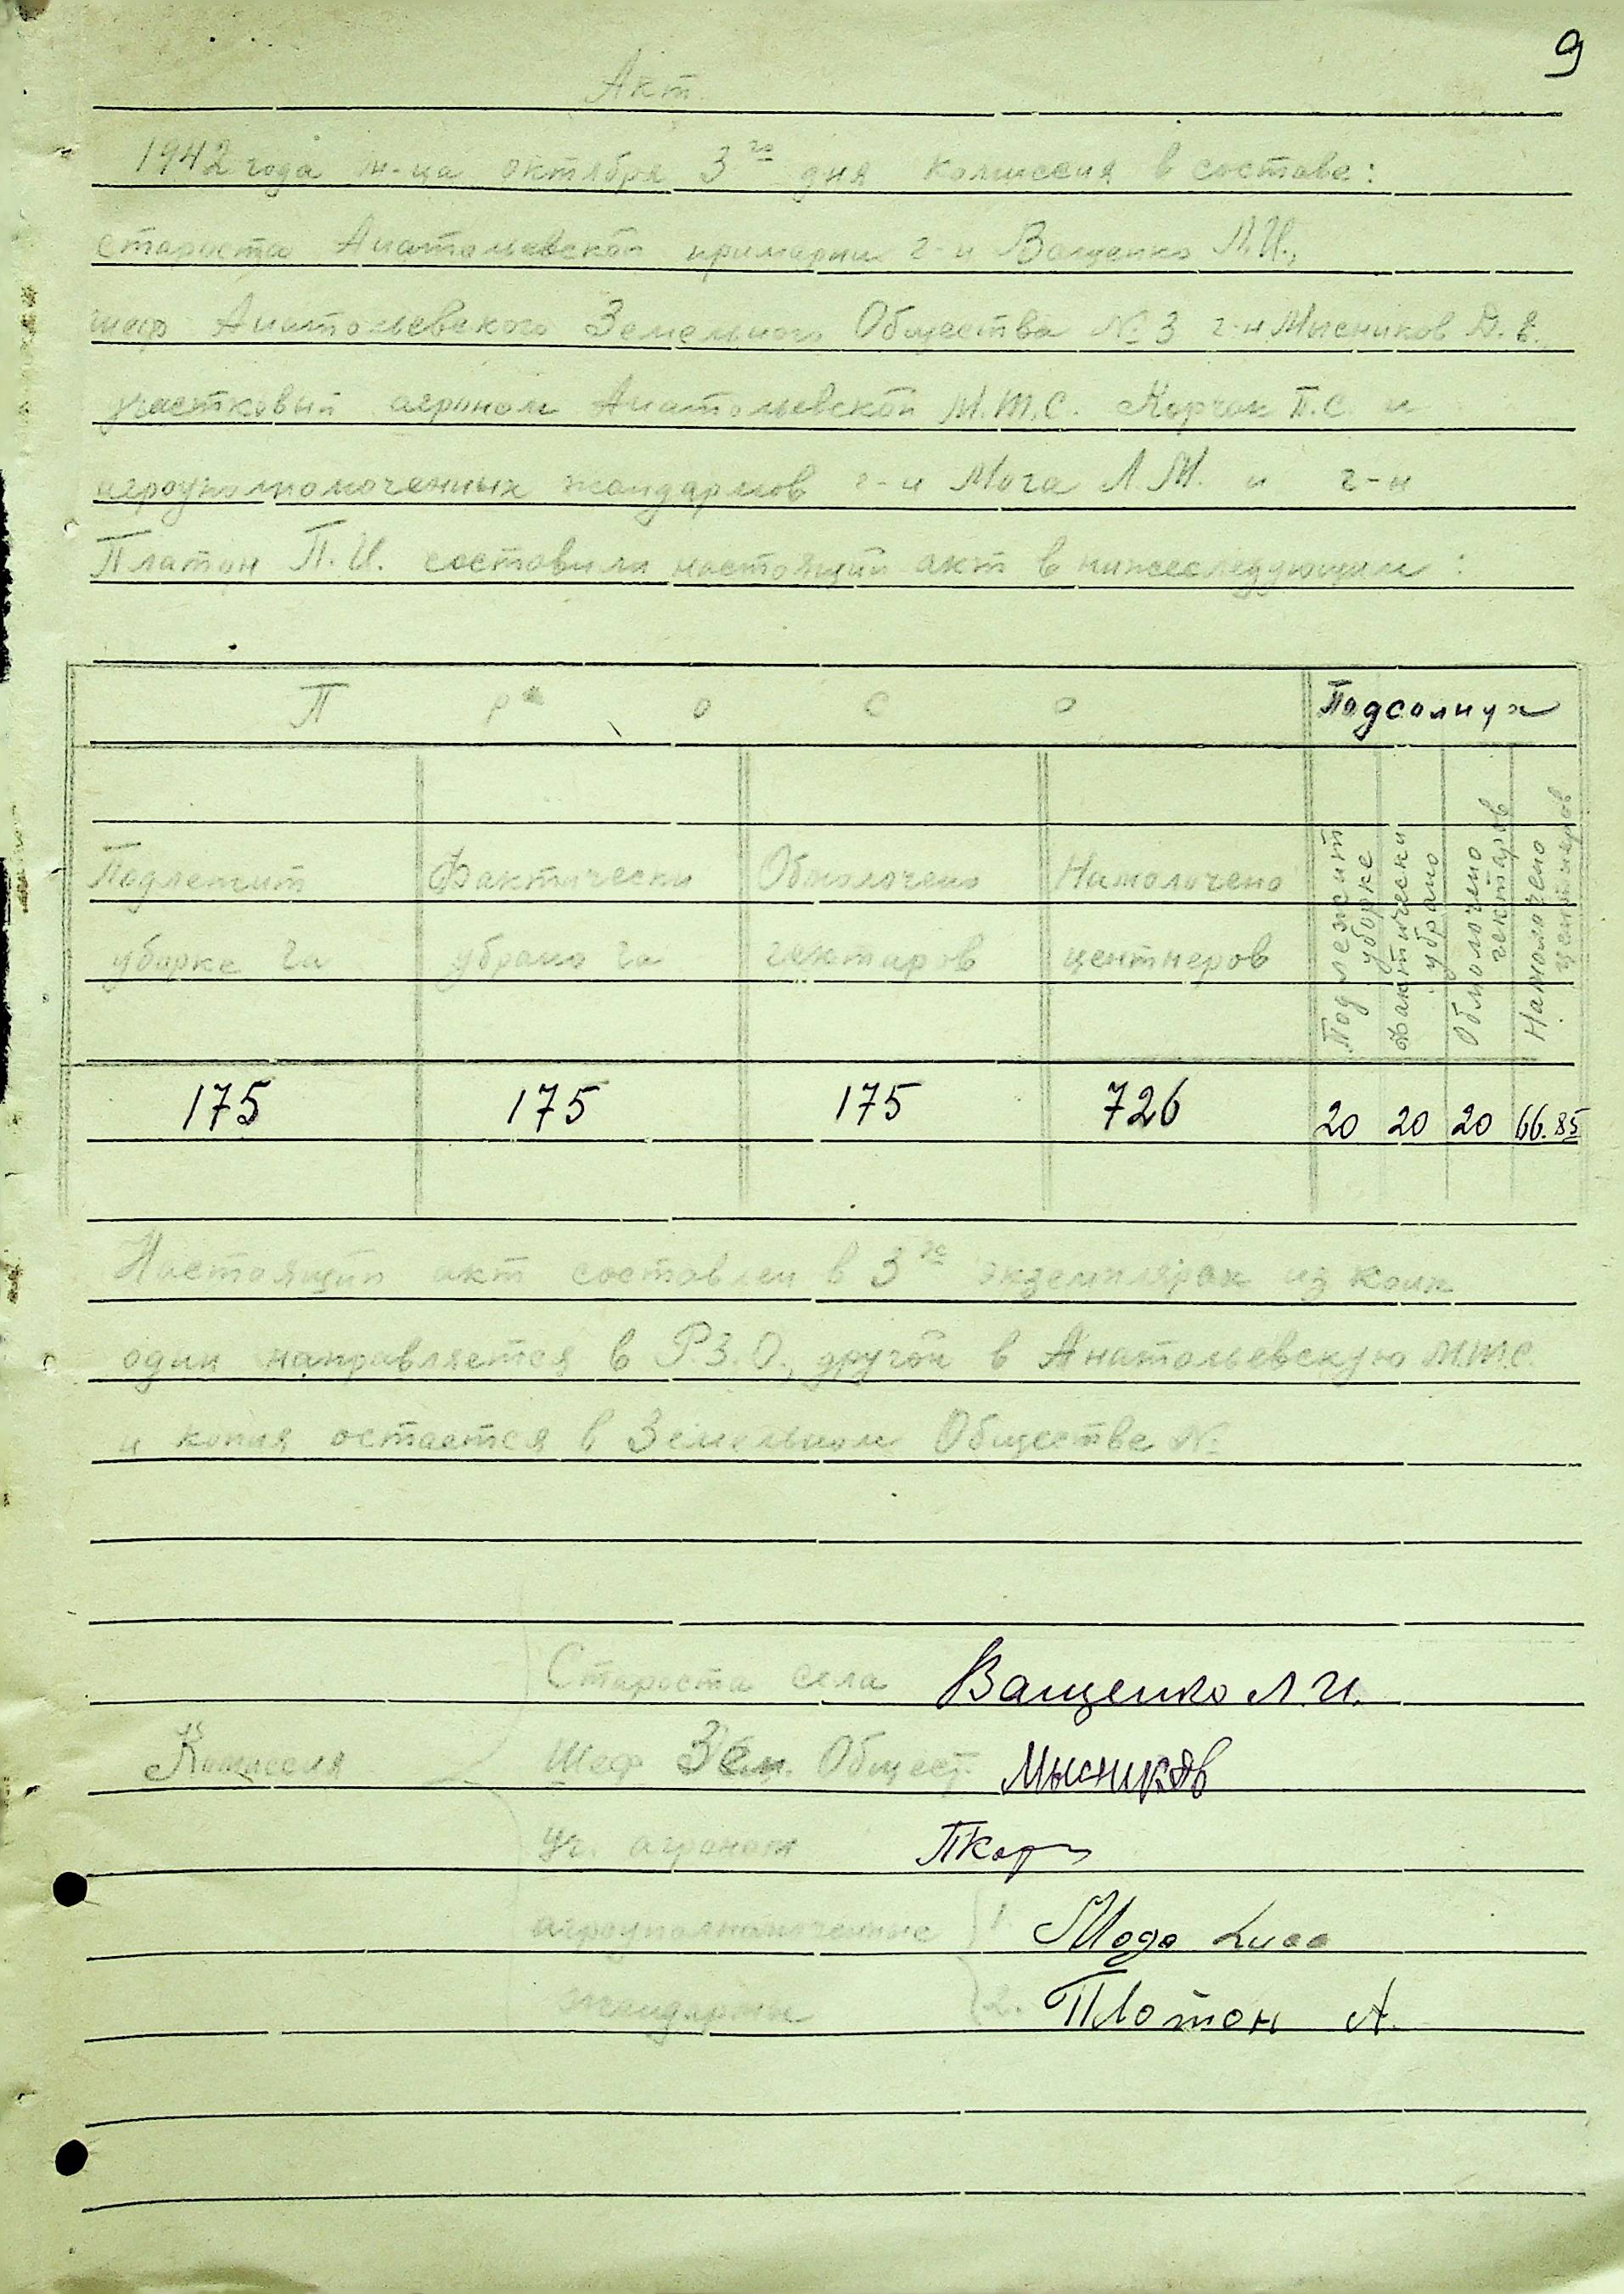 9
Акт
1942 года м-ца октября 3го дня комиссия в составе:
староста Анатольевской примарии г-н Ващенко Л.И.,
шеф Анатольевского Земельного Общества № 3 г-н Мысников Д. Е.
участковый агроном Анатольевской М.Т.С. Корчак П.С. и
агроуполномоченных жандармов г-н Мога Л.М. и г-н
Платон П.И. составили настоящий акт в нижеследующем:
П р о с о Подсолнух
Подлежит уборке га
Фактически убрано га
Обмолочено гектаров
Намолочено центнеров
Подлежит уборке
Фактически убрано
Обмолочено гектаров
Намолочено центнеров
175 175 175 726 20 20 20 66.85
Настоящий акт составлен в 3х экземплярах из коих
один направляется в Р.З.О., другой в Анатольевскую М.Т.С.
и копия остается в Земельном Обществе №
Староста села Ващенко Л.И.
Комиссия Шеф Зем. Общест. Мысников
Уч. агроном ПКорч
агроуполномоченные 1. Мога
жандармы 2. Платон А.